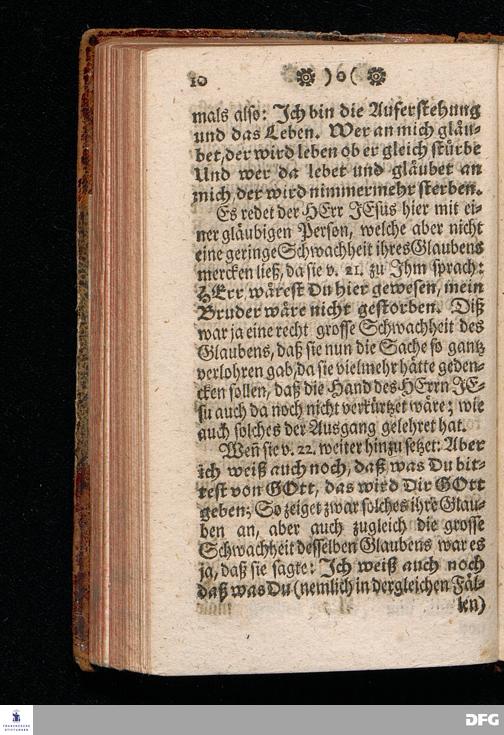 10 )o(
mals also: Ich bin die Auferstehung
und das Leben. Wer an mich gläu-
bet, der wird leben ob er gleich stürbe
Und wer da lebet und gläubet an
mich, der wird nimmermehr sterben.
Es redet der HErr JEsus hier mit ei-
ner gläubigen Person, welche aber nicht
eine geringe Schwachheit ihres Glaubens
mercken ließ, da sie v. 21. zu Ihm sprach:
HErr, wärest Du hier gewesen, mein
Bruder wäre nicht gestorben. Diß
war ja eine recht grosse Schwachheit des
Glaubens, daß sie nun die Sache so gantz
verlohren gab, da sie vielmehr hätte geden-
cken sollen, daß die Hand des HErrn JE-
su auch da noch nicht verkürtzet wäre; wie
auch solches der Ausgang gelehret hat.
Weñ sie v. 22. weiter hinzu setzet: Aber
ich weiß auch noch, daß was Du bit-
test von GOtt, das wird Dir GOtt
geben; So zeiget zwar solches ihrē Glau-
ben an, aber auch zugleich die grosse
Schwachheit desselben Glaubens war es
ja, daß sie sagte: Ich weiß auch noch
daß was Du (nemlich in dergleichen Fäl-
len)
FRANCKESCHE
STIFTUNGEN
DFG